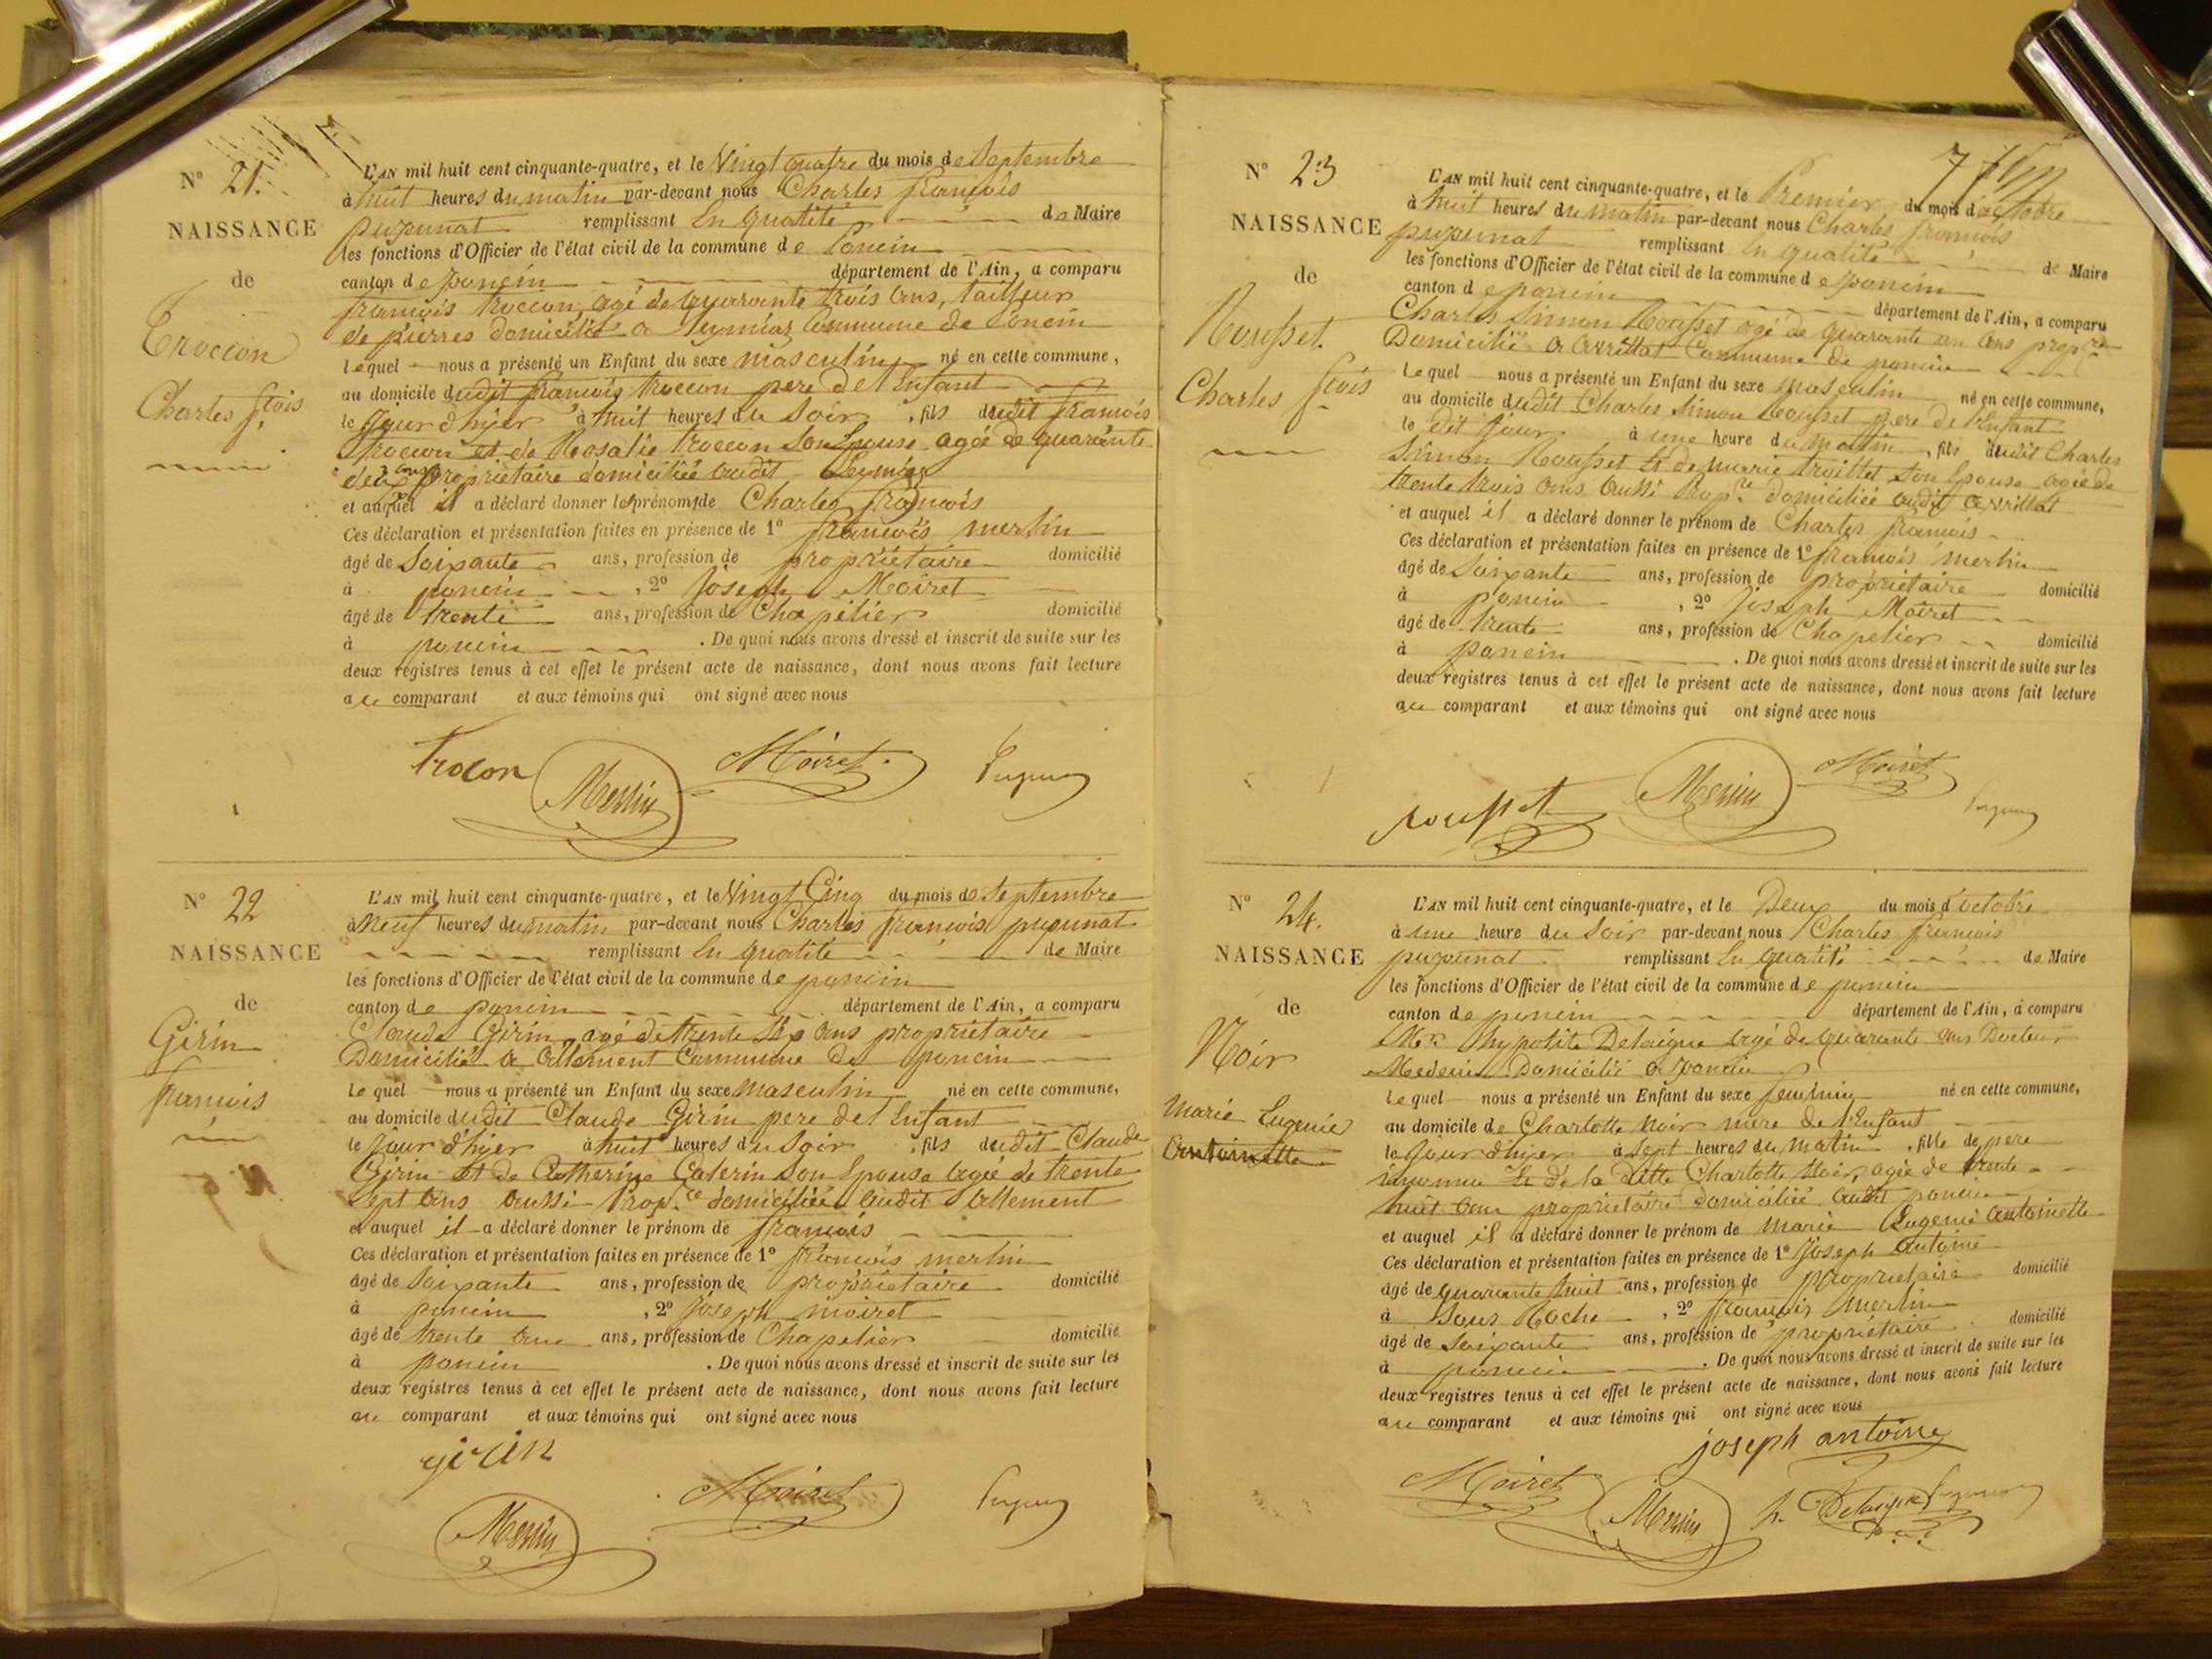 N° 21.
NAISSANCE
de
Troccon
Charles fçois
L'AN mil huit cent cinquante-quatre, et le Vingt quatre du mois de Septembre
à huit heures du matin par-devant nous Charles françois
pugunat remplissant En qualité de Maire
les fonctions d'Officier de l'état civil de la commune de Poncin
canton de poncin département de l'Ain, a comparu
françois troccon, agé de quarante trois ans, tailleur
de pierres domicilié a Leymiaz Commune de Poncin
Lequel nous a présenté un Enfant du sexe masculin né en cette commune,
au domicile dudit françois troccon pere de l'Enfant
le jour d'hyer à huit heures du Soir, fils dudit françois
troccon et de Rosalie troccon Son Epouse agée de quarante
deux ans propriétaire domiciliée audit Leymiaz
et auquel il a déclaré donner les prénoms de Charles françois
Ces déclaration et présentation faites en présence de 1° françois merlin
âgé de Soixante ans, profession de propriétaire domicilié
à poncin, 2° Joseph Moiret
âgé de trente ans, profession de Chapelier domicilié
à poncin. De quoi nous avons dressé et inscrit de suite sur les
deux registres tenus à cet effet le présent acte de naissance, dont nous avons fait lecture
au comparant et aux témoins qui ont signé avec nous
Trocon Merlin Moiret
N° 22
NAISSANCE
de
Girin
françois
L'AN mil huit cent cinquante-quatre, et le Vingt Cinq du mois de Septembre
à Neuf heures du matin par-devant nous Charles françois pugunat
remplissant En qualité de Maire
les fonctions d'Officier de l'état civil de la commune de poncin
canton de poncin département de l'Ain, a comparu
Claude Girin, agé de trente six ans propriétaire
Domicilié a allement Commune de poncin
Lequel nous a présenté un Enfant du sexe masculin né en cette commune,
au domicile dudit Claude Girin pere de l'Enfant
le jour d'hyer à huit heures du Soir, fils dudit Claude
Girin et de Catherine Son Epouse agée de trente
Sept ans aussi prop.re domiciliée audit allement
et auquel il a déclaré donner le prénom de françois
Ces déclaration et présentation faites en présence de 1° françois merlin
âgé de Soixante ans, profession de propriétaire domicilié
à poncin, 2° Joseph moiret
âgé de trente ans, profession de Chapelier domicilié
à poncin. De quoi nous avons dressé et inscrit de suite sur les
deux registres tenus à cet effet le présent acte de naissance, dont nous avons fait lecture
au comparant et aux témoins qui ont signé avec nous
girin
Merlin Moiret
7
N° 23
NAISSANCE
de
Rousset
Charles fçois
L'AN mil huit cent cinquante-quatre, et le Premier du mois d'octobre
à huit heures du matin par-devant nous Charles françois
pugunat remplissant En qualité de Maire
les fonctions d'Officier de l'état civil de la commune de poncin
canton de poncin département de l'Ain, a comparu
Charles Simon Rousset agé de quarante un ans prop.re
Domicilié a avrillat Commune de poncin
Lequel nous a présenté un Enfant du sexe masculin né en cette commune,
au domicile dudit Charles Simon Rousset pere de l'Enfant
le dit jour à une heure du matin, fils dudit Charles
Simon Rousset et de marie truillet Son Epouse agée de
trente trois ans aussi prop.re domiciliée audit avrillat
et auquel il a déclaré donner le prénom de Charles françois
Ces déclaration et présentation faites en présence de 1° françois merlin
âgé de Soixante ans, profession de propriétaire domicilié
à poncin, 2° Joseph Moiret
âgé de trente ans, profession de Chapelier domicilié
à poncin. De quoi nous avons dressé et inscrit de suite sur les
deux registres tenus à cet effet le présent acte de naissance, dont nous avons fait lecture
au comparant et aux témoins qui ont signé avec nous
rousset Merlin Moiret
N° 24.
NAISSANCE
de
Noir
Marie Eugenie
Antoinette
L'AN mil huit cent cinquante-quatre, et le Deux du mois d'octobre
à une heure du Soir par-devant nous Charles françois
pugunat remplissant En qualité de Maire
les fonctions d'Officier de l'état civil de la commune de poncin
canton de poncin département de l'Ain, a comparu
Mr hypolite Delaigue agé de quarante ans Docteur
Medecin Domicilié a poncin
Lequel nous a présenté un Enfant du sexe feminin né en cette commune,
au domicile de Charlotte Noir mere de l'Enfant
le jour d'hyer à Sept heures du matin, fille de pere
inconnu et de la ditte Charlotte Noir, agée de trente
huit ans propriétaire domiciliée audit poncin
et auquel il a déclaré donner le prénom de Marie Eugenie antoinette
Ces déclaration et présentation faites en présence de 1° Joseph antoine
âgé de quarante huit ans, profession de propriétaire domicilié
à Sous Roche, 2° françois merlin
âgé de Soixante ans, profession de propriétaire domicilié
à poncin. De quoi nous avons dressé et inscrit de suite sur les
deux registres tenus à cet effet le présent acte de naissance, dont nous avons fait lecture
au comparant et aux témoins qui ont signé avec nous
joseph antoine
Moiret Merlin h. Delaigue